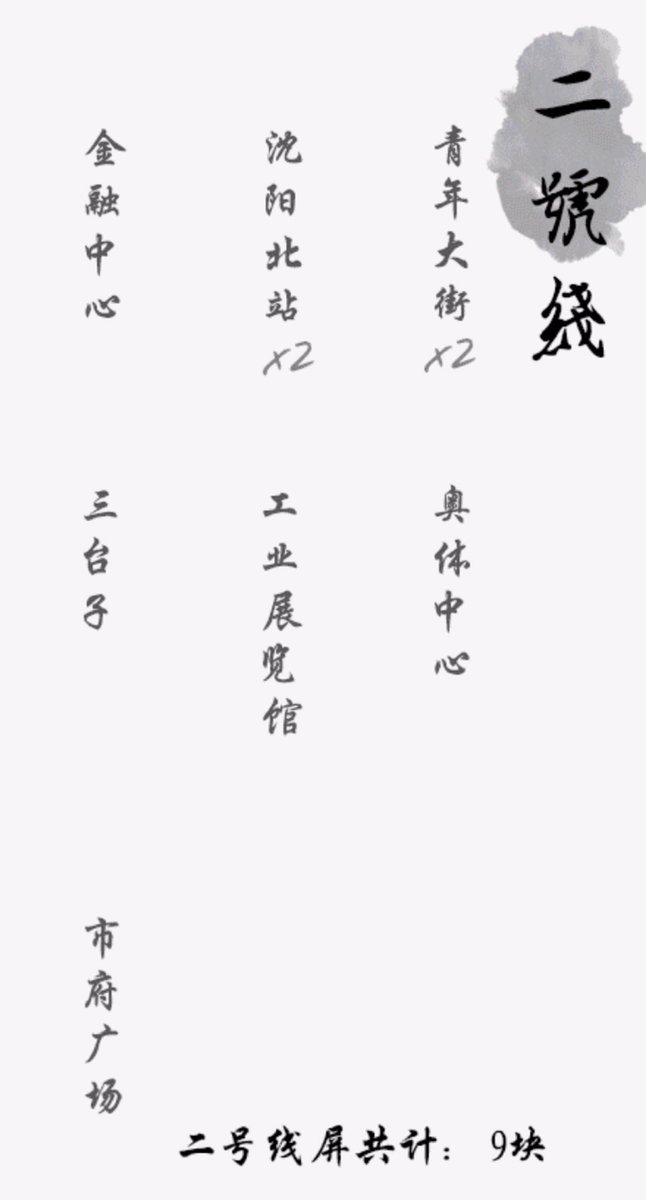 二號綫
青年大街
x2
沈阳北站
x2
金融中心
奥体中心
工业展览馆
三台子
市府广场
二号线屏共计：9块